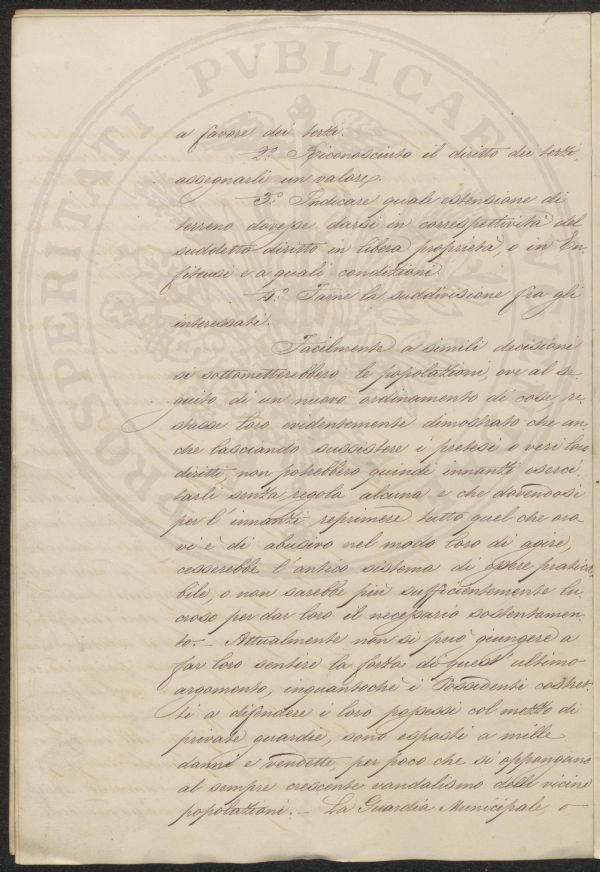 a favore dei terzi.
2.° Riconosciuto il diritto dei terzi,
assegnarli un valore.
3.° Indicare quale estensione di
terreno dovesse darsi in correspettività del
suddetto diritto in libera proprietà o in En-
fiteusi e a quali condizioni
4.° Farne la suddivisione fra gli
interessati.
Facilmente a simili decisioni
si sottometterebbero le popolazioni, ove al se-
guito di un nuovo ordinamento di cose, re-
stasse loro evidentemente dimostrato che an-
che lasciando sussistere i pretesi o veri loro
diritti, non potrebbero quindi innanzi eserci-
tarli senza regola alcuna e che dovendosi
per l'innanzi reprimere tutto quel che ora
vi è di abusivo nel modo loro di agire,
cesserebbe l'antico sistema di essere pratica-
bile, o non sarebbe più sufficientemente lu-
croso per dar loro il necessario sostentamen-
to. — Attualmente non si può giungere a
far loro sentire la forza di quest'ultimo
argomento, inquantochè i Possidenti costret-
ti a difendere i loro possessi col mezzo di
private guardie, sono esposti a mille
danni e vendette, per poco che si oppongano
al sempre crescente vandalismo delle vicine
popolazioni. — La Guardia Municipale, o
PROSPERITATI PVBLICAE